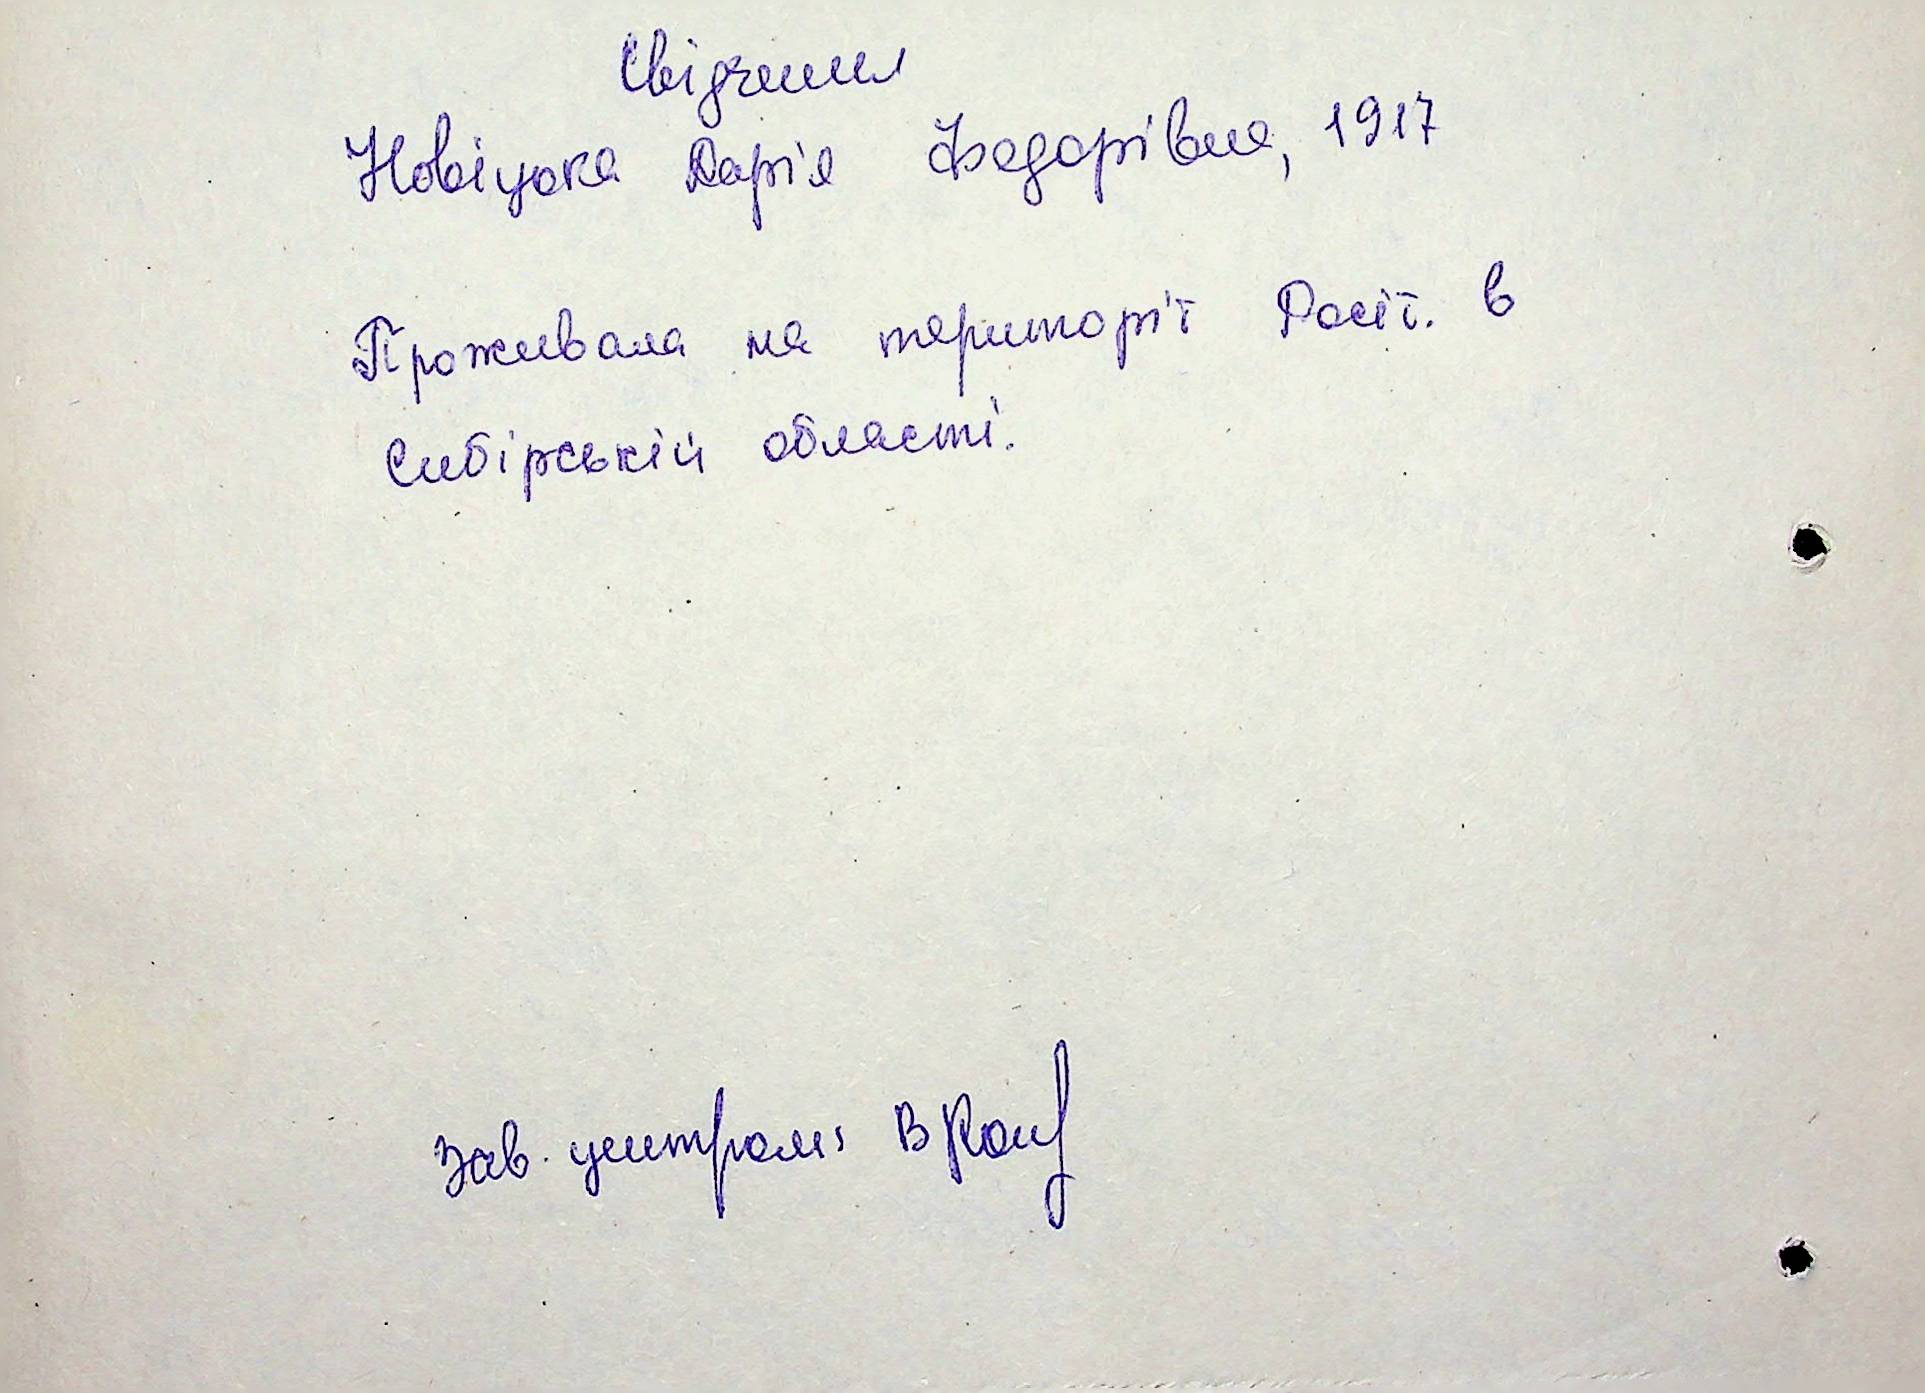 Свідчення
Новіцька Дарія Федорівна, 1917
Проживала на території Росії. в
Сибірській області.
Зав. центром: В